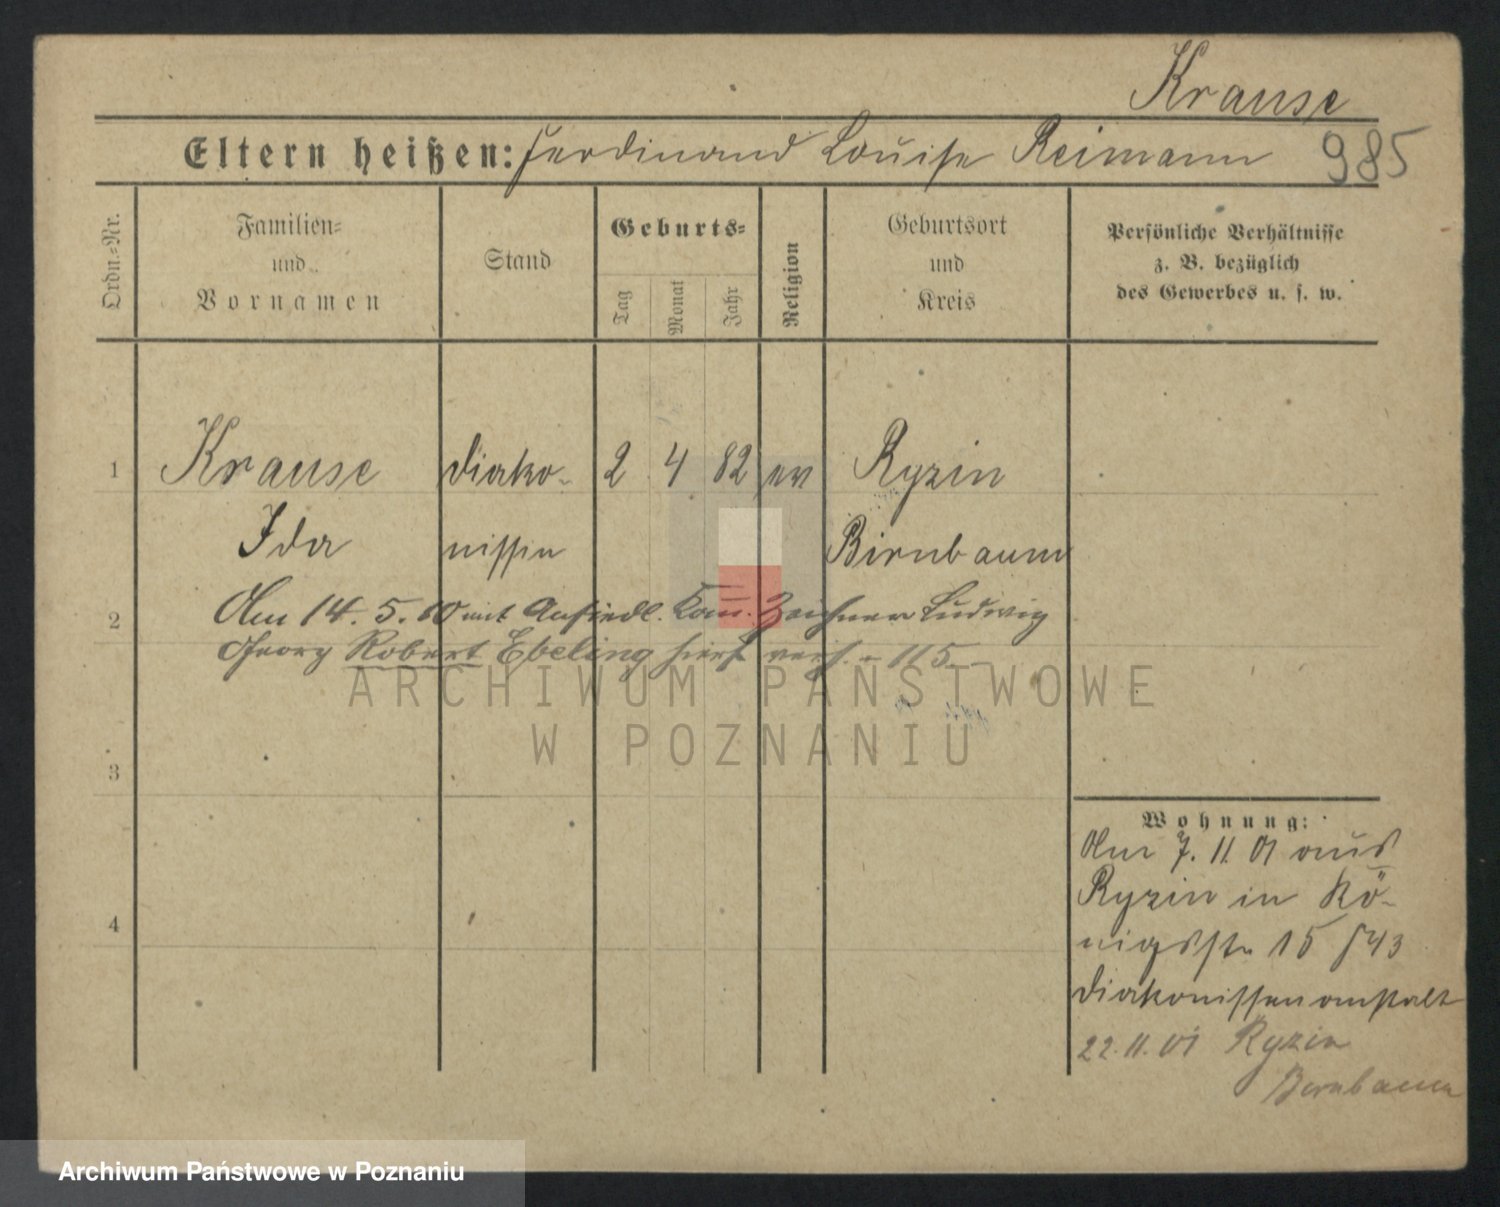 Krause
Eltern heißen: Ferdinand Louise Reimann 985
Ordn.-Nr.
Familien-
und
Vornamen
Stand
Geburts-
Tag
Monat
Jahr
Religion
Geburtsort
und
Kreis
Persönliche Verhältnisse
z. B. bezüglich
des Gewerbes u. s. w.
1 Krause Diako- 2 4 82 ev Ryzin
Ida nissin Birnbaum
2 Am 14. 5. 10 mit Ansiedl. Kom. Zeichner Ludwig
Georg Robert Ebeling hier verh. 115
ARCHIWUM PAŃSTWOWE
W POZNANIU
3
4
Wohnung:
Am 7. 11 01 aus
Ryzin in Kö-
nigsstr 15 J43
Diakonissenanstalt
22. 11. 01 Ryzin
Birnbaum
Archiwum Państwowe w Poznaniu